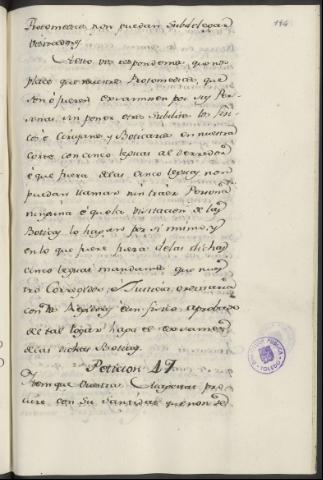 194
Protomedicos non puedan subdelegar
A esto vos respondemos que nos
place que nuestros Protomedicos, que
son ó fueren examinen por sus Per-
sonas, sin poner otro Substituto los Fisi-
cos é Cirujanos y Boticarios en nuestra
Corte con cinco leguas al derredor
é que fuera de las cinco leguas non
puedan llamar nin traer Persona
ninguna é que la visitacion de las
Boticas lo hagan por si mismos, y
en lo que fuere fuera de las dichas
cinco leguas mandamos que nues-
tro Corregidor, ó Justicia ordinaria
con dos Regidores é un fisico aprobado
de tal logar haga el examen
de las dichas Boticas
Peticion 47
Item que Vuestra Magestad pro-
cure con Su Santidad que non se
BIBLIOTECA PUBLICA
TOLEDO